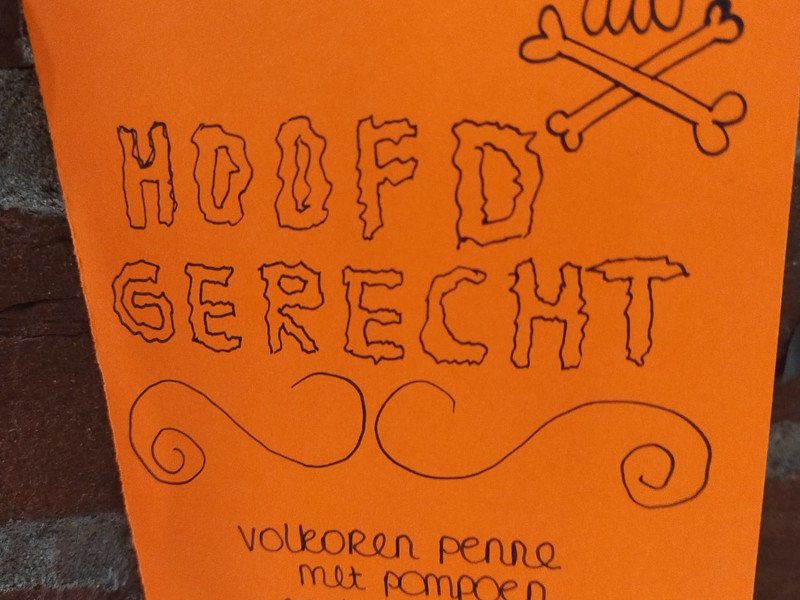 HOOFD
GERECHT
VOLKOREN PENNE
met pompoen